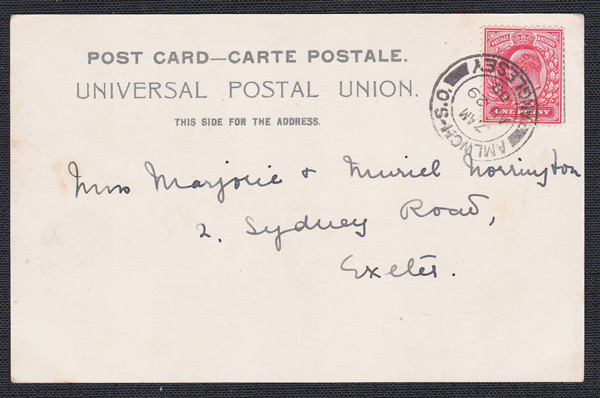 POST CARD—CARTE POSTALE.
UNIVERSAL POSTAL UNION.
THIS SIDE FOR THE ADDRESS.
POSTAGE REVENUE
ONE PENNY
AMLWCH-S.O.
ANGLESEY
7 AM
Miss Marjorie & Muriel Norrington
2. Sydney Road,
Exeter.